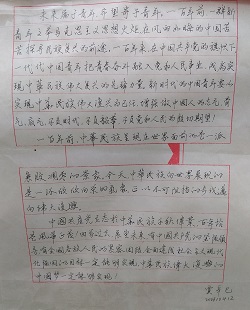 未来属于青年，希望寄予青年。一百年前，一群新
青年高举马克思主义思想火炬，在风雨如晦的中国苦
苦探寻民族复兴的前途。一百年来，在中国共产党的旗帜下，
一代代中国青年把青春奋斗融入党和人民事业，成为实现
中华民族伟大复兴的先锋力量。新时代的中国青年要以
实现中华民族伟大复兴为己任，增强做中国人的志气、骨
气、底气，不负时代，不负韶华，不负党和人民的殷切期望！
一百年前，中华民族呈现在世界面前的是一派
衰败凋零的景象。今天，中华民族向世界展现的
是一派欣欣向荣的气象，正以不可阻挡的步伐迈
向伟大复兴。
中国共产党立志于中华民族千秋伟业，百年恰
是风华正茂！回首过去，展望未来，有中国共产党的坚强领
导，有全国各族人民的紧密团结，全面建成社会主义现代
化强国的目标一定能够实现，中华民族伟大复兴的
中国梦一定能够实现！